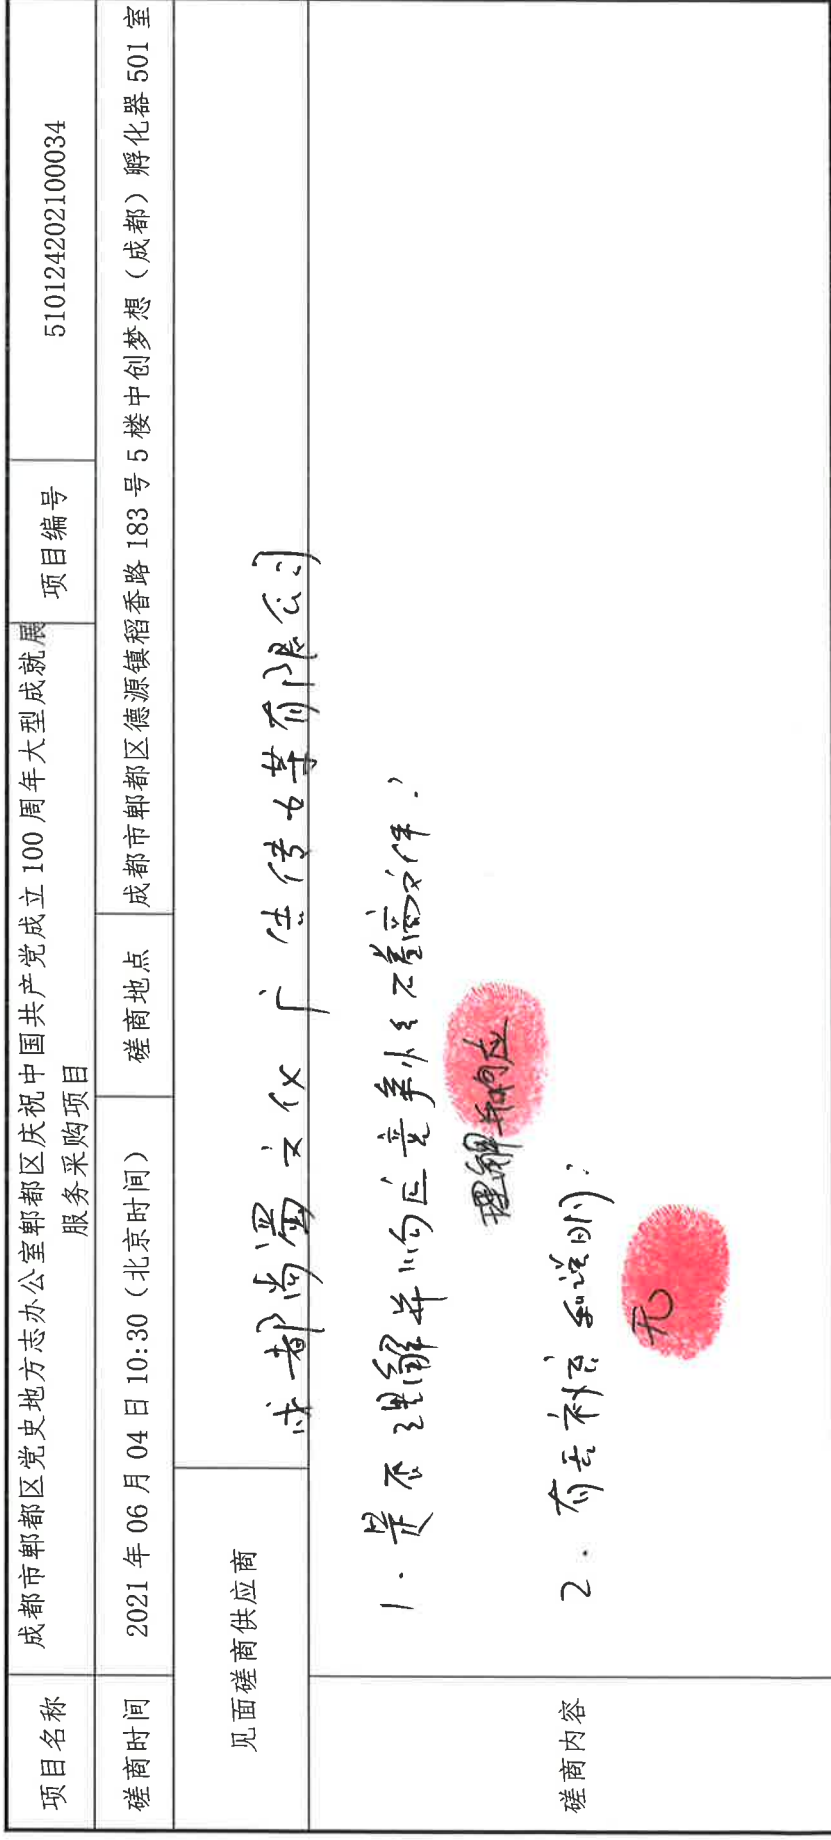 项目名称
成都市郫都区党史地方志办公室郫都区庆祝中国共产党成立 100 周年大型成就展
服务采购项目
项目编号
510124202100034
磋商时间
2021 年 06 月 04 日 10:30（北京时间）
磋商地点
成都市郫都区德源镇稻香路 183 号 5 楼中创梦想（成都）孵化器 501 室
见面磋商供应商
成都尚 文化广告传媒有限公司
磋商内容
1. 是否理解并响应竞争性磋商文件?
理解并响应
2. 有无补充和说明?
无